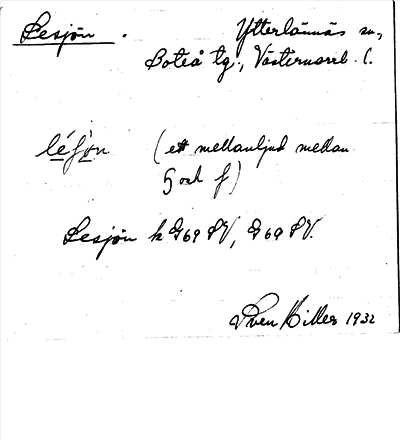 Lesjön.
Ytterlännäs sn,
Boteå tg., Västernorrl. l.
léʃòn (ett mellanljud mellan
ʃ)
Lesjön k G69 SV, G69 SV.
Sven Hiller 1932